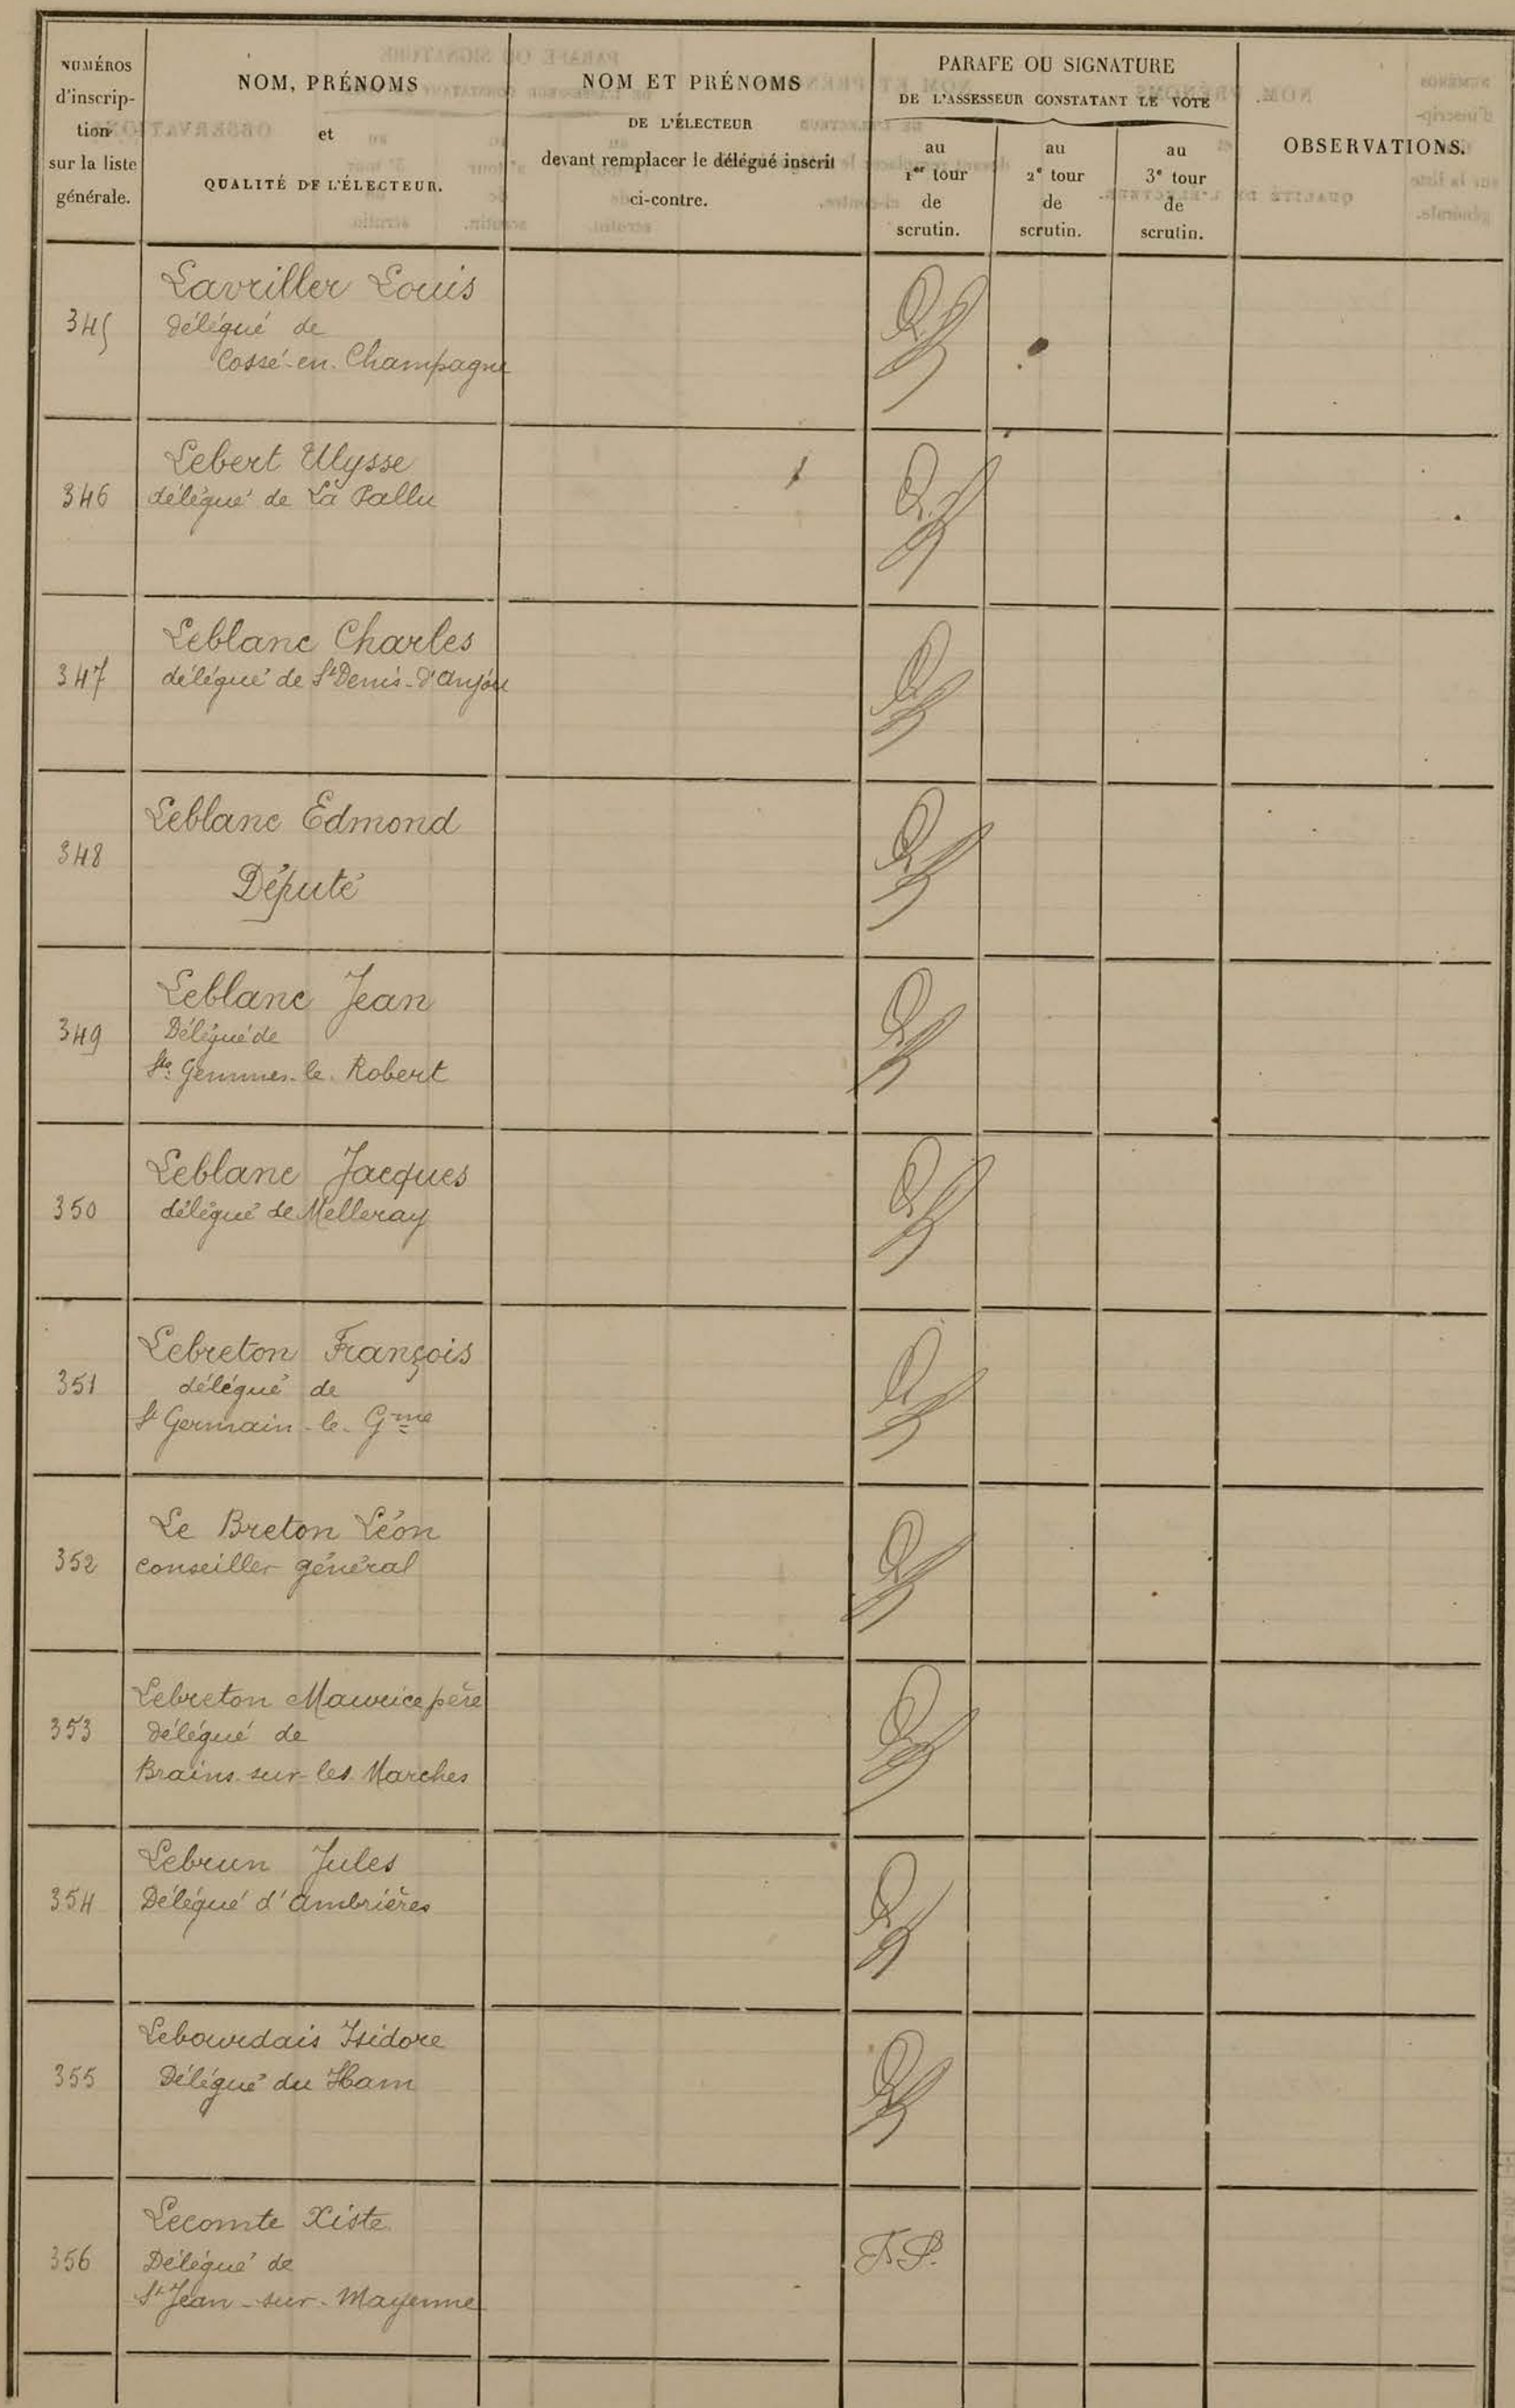 NUMÉROS
d'inscrip-
tion
sur la liste
générale.
NOM, PRÉNOMS
et
QUALITÉ DE L'ÉLECTEUR.
NOM ET PRÉNOMS
DE L'ÉLECTEUR
devant remplacer le délégué inscrit
ci-contre.
PARAFE OU SIGNATURE
DE L'ASSESSEUR CONSTATANT LE VOTE
au
1er tour
de
scrutin.
au
2e tour
de
scrutin.
au
3e tour
de
scrutin.
OBSERVATIONS.
345
Lavriller Louis
délégué de
Cossé-en-Champagne
346
Lebert Ulysse
délégué de La Pallu
347
Leblanc Charles
délégué de St Denis-d'Anjou
348
Leblanc Edmond
Député
349
Leblanc Jean
Délégué de
Ste Gemmes-le-Robert
350
Leblanc Jacques
délégué de Melleray
351
Lebreton François
délégué de
St Germain-le-Gme
352
Le Breton Léon
conseiller général
353
Lebreton Maurice père
délégué de
Brains-sur-les-Marches
354
Lebrun Jules
Délégué d'Ambrières
355
Lebourdais Isidore
Délégué du Ham
356
Lecomte Xiste
Délégué de
St Jean-sur-Mayenne